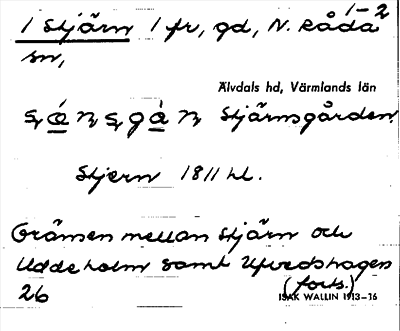 1-2
1 Stjärn 1 fr, gd, N. Råda
sn,
Älvdals hd, Värmlands län
Stjärnsgården
Stjern 1811 hl.
Gränsen mellan Stjärn och
Uddeholm samt Upvedshagen
(forts.)
26
ISAK WALLIN 1913–16